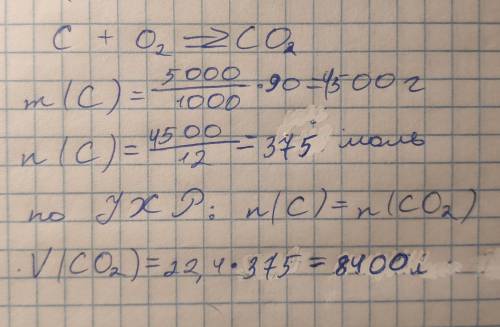 C + O₂ ⇒ CO₂
m(C) = 5000/1000 · 90 = 4500 г
n(C) = 4500/12 = 375 моль
по УХР: n(C) = n(CO₂)
V(CO₂) = 22,4 · 375 = 8400 л